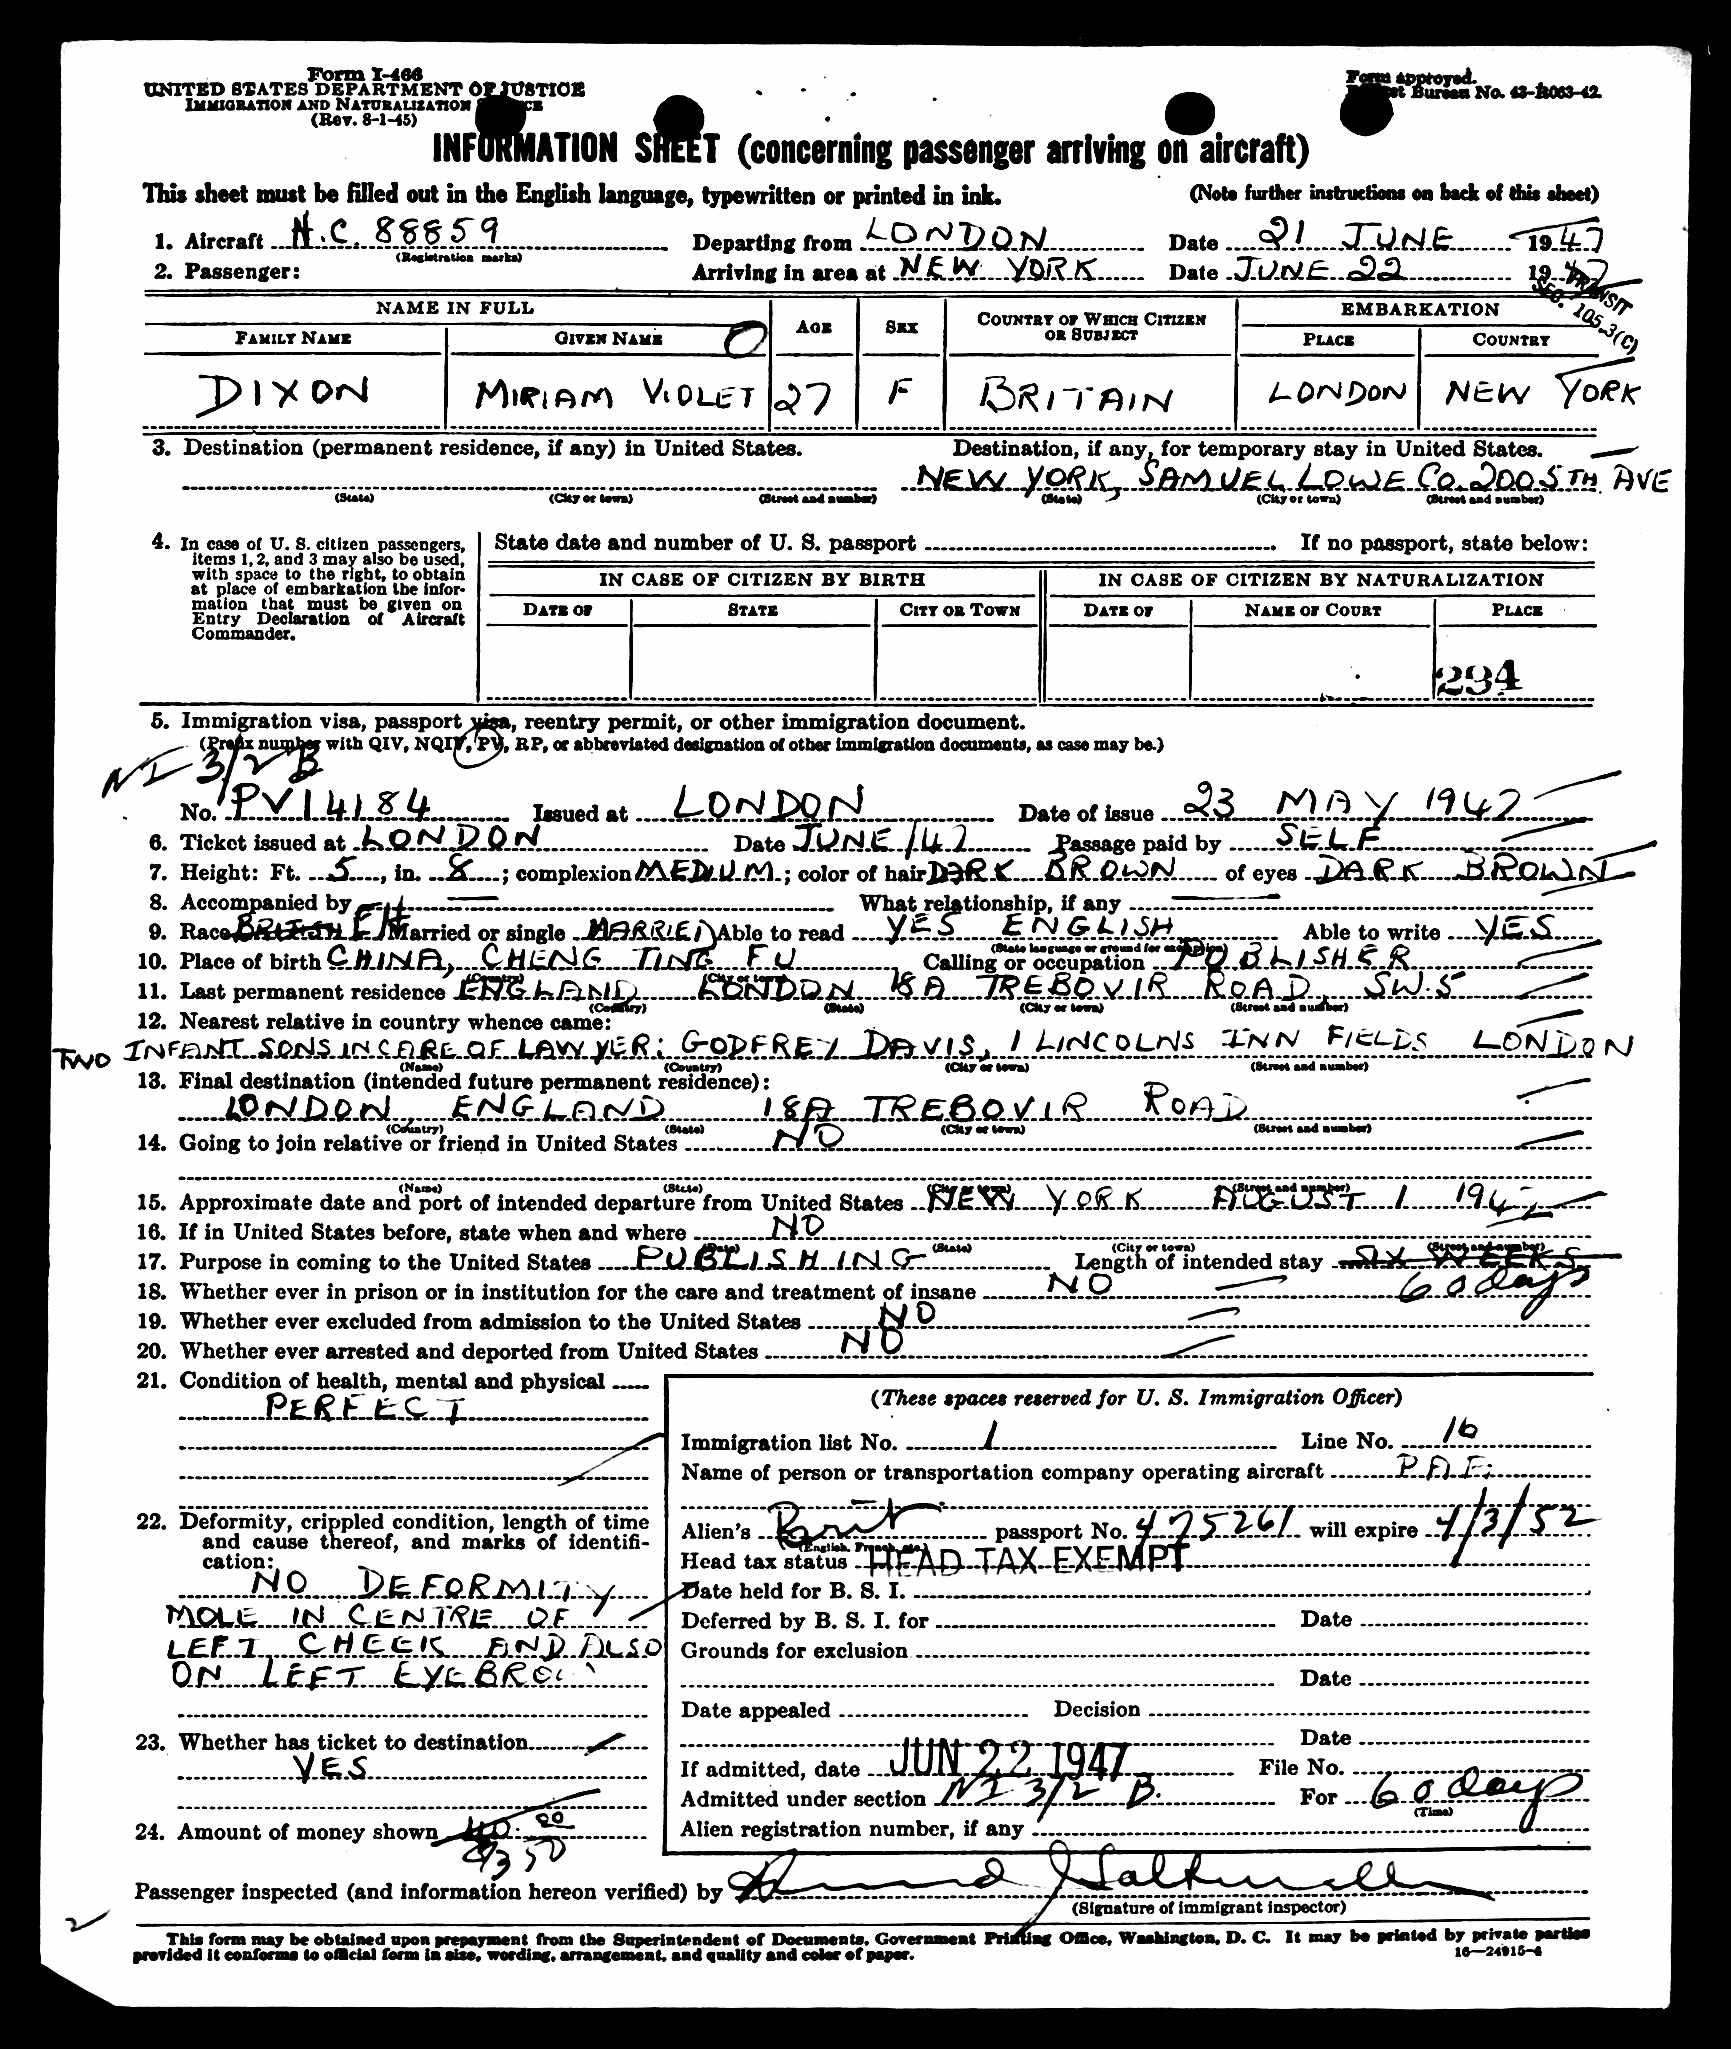 Form I-466
UNITED STATES DEPARTMENT OF JUSTICE
IMMIGRATION AND NATURALIZATION
(Rev. 8-1-45)
Form approved.
Bureau No. 43-R063-42.
INFORMATION SHEET (concerning passenger arriving on aircraft)
This sheet must be filled out in the English language, typewritten or printed in ink. (Note further instructions on back of this sheet)
1. Aircraft N.C. 88859 Departing from LONDON Date 21 JUNE 1947
(Registration marks)
2. Passenger: Arriving in area at NEW YORK Date JUNE 22 1947
TRANSIT
SEC. 105.3(C)
NAME IN FULL AGE SEX COUNTRY OF WHICH CITIZEN OR SUBJECT EMBARKATION
FAMILY NAME GIVEN NAME PLACE COUNTRY
DIXON MIRIAM VIOLET 27 F BRITAIN LONDON NEW YORK
3. Destination (permanent residence, if any) in United States. Destination, if any, for temporary stay in United States.
NEW YORK, SAMUEL LOWE CO. 200 5TH AVE
(State) (City or town) (Street and number) (State) (City or town) (Street and number)
4. In case of U. S. citizen passengers, items 1, 2, and 3 may also be used, with space to the right, to obtain at place of embarkation the information that must be given on Entry Declaration of Aircraft Commander.
State date and number of U. S. passport . If no passport, state below:
IN CASE OF CITIZEN BY BIRTH IN CASE OF CITIZEN BY NATURALIZATION
DATE OF STATE CITY OR TOWN DATE OF NAME OF COURT PLACE
294
5. Immigration visa, passport visa, reentry permit, or other immigration document.
(Prefix number with QIV, NQIV, PV, RP, or abbreviated designation of other immigration documents, as case may be.)
NI 3/2 B
No. PV14184 Issued at LONDON Date of issue 23 MAY 1947
6. Ticket issued at LONDON Date JUNE/47 Passage paid by SELF
7. Height: Ft. 5, in. 8; complexion MEDIUM; color of hair DARK BROWN of eyes DARK BROWN
8. Accompanied by — What relationship, if any —
9. Race BRITISH Married or single MARRIED Able to read YES ENGLISH Able to write YES
(State language or ground for exemption)
10. Place of birth CHINA, CHENG TING FU Calling or occupation PUBLISHER
(Country) (City or town)
11. Last permanent residence ENGLAND LONDON 18A TREBOVIR ROAD, SW.5
(Country) (State) (City or town) (Street and number)
12. Nearest relative in country whence came:
TWO INFANT SONS IN CARE OF LAWYER: GODFREY DAVIS, 1 LINCOLNS INN FIELDS LONDON
(Name) (Country) (City or town) (Street and number)
13. Final destination (intended future permanent residence):
LONDON, ENGLAND 18A TREBOVIR ROAD
(Country) (State) (City or town) (Street and number)
14. Going to join relative or friend in United States NO
(Name) (State) (City or town) (Street and number)
15. Approximate date and port of intended departure from United States NEW YORK AUGUST 1 1947
16. If in United States before, state when and where NO
(Date) (State) (City or town) (Street and number)
17. Purpose in coming to the United States PUBLISHING Length of intended stay SIX WEEKS
60 days
18. Whether ever in prison or in institution for the care and treatment of insane NO
19. Whether ever excluded from admission to the United States NO
20. Whether ever arrested and deported from United States NO
21. Condition of health, mental and physical
PERFECT
22. Deformity, crippled condition, length of time and cause thereof, and marks of identification:
NO DEFORMITY
MOLE IN CENTRE OF
LEFT CHEEK AND ALSO
ON LEFT EYEBROW
23. Whether has ticket to destination
YES
24. Amount of money shown 40.00
350
(These spaces reserved for U. S. Immigration Officer)
Immigration list No. 1 Line No. 16
Name of person or transportation company operating aircraft P.A.
Alien's Brit passport No. 475261 will expire 4/3/52
(English, French, etc.)
Head tax status HEAD TAX EXEMPT
Date held for B. S. I.
Deferred by B. S. I. for Date
Grounds for exclusion
Date
Date appealed Decision
Date
If admitted, date JUN 22 1947 File No.
Admitted under section NI 3/2 B. For 60 days
(Time)
Alien registration number, if any
Passenger inspected (and information hereon verified) by
(Signature of immigrant inspector)
2
This form may be obtained upon prepayment from the Superintendent of Documents, Government Printing Office, Washington, D. C. It may be printed by private parties
provided it conforms to official form in size, wording, arrangement, and quality and color of paper. 16—24915-4